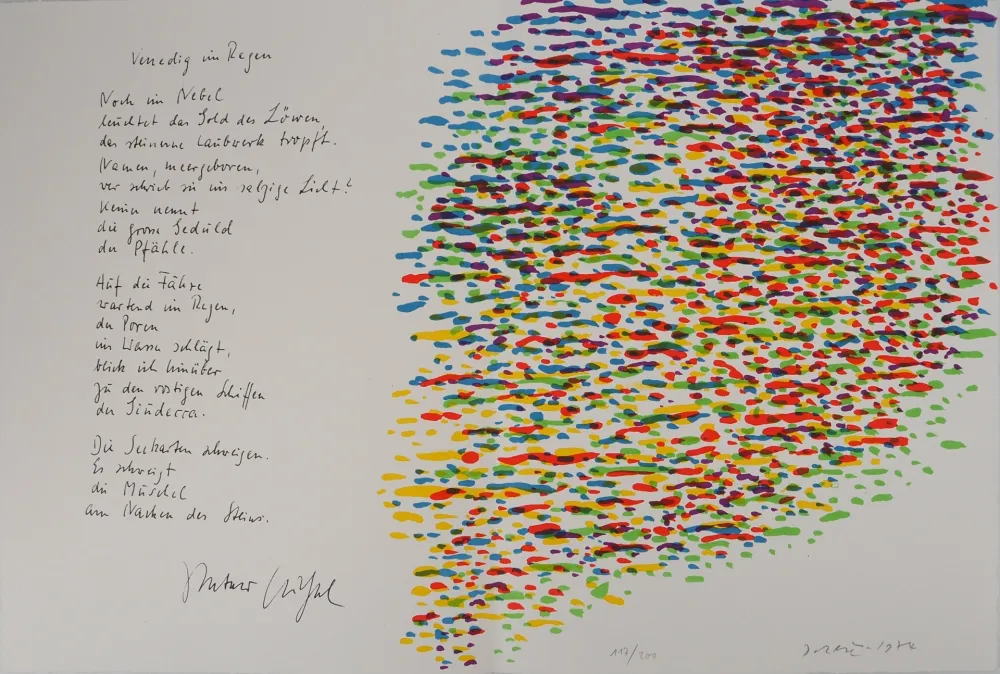 Venedig im Regen
Noch im Nebel
leuchtet das Gold des Löwen,
das steinerne Laubwerk tropft.
Namen, meergeboren,
wer schrieb sie ins salzige Licht?
Keiner nennt
die große Geduld
der Pfähle.
Auf die Fähre
wartend im Regen,
der Poren
ins Wasser schlägt,
blick ich hinüber
zu den rostigen Schiffen
der Giudecca.
Die Seekarten schweigen.
Es schweigt
die Muschel
am Nacken des Steins.
117/200